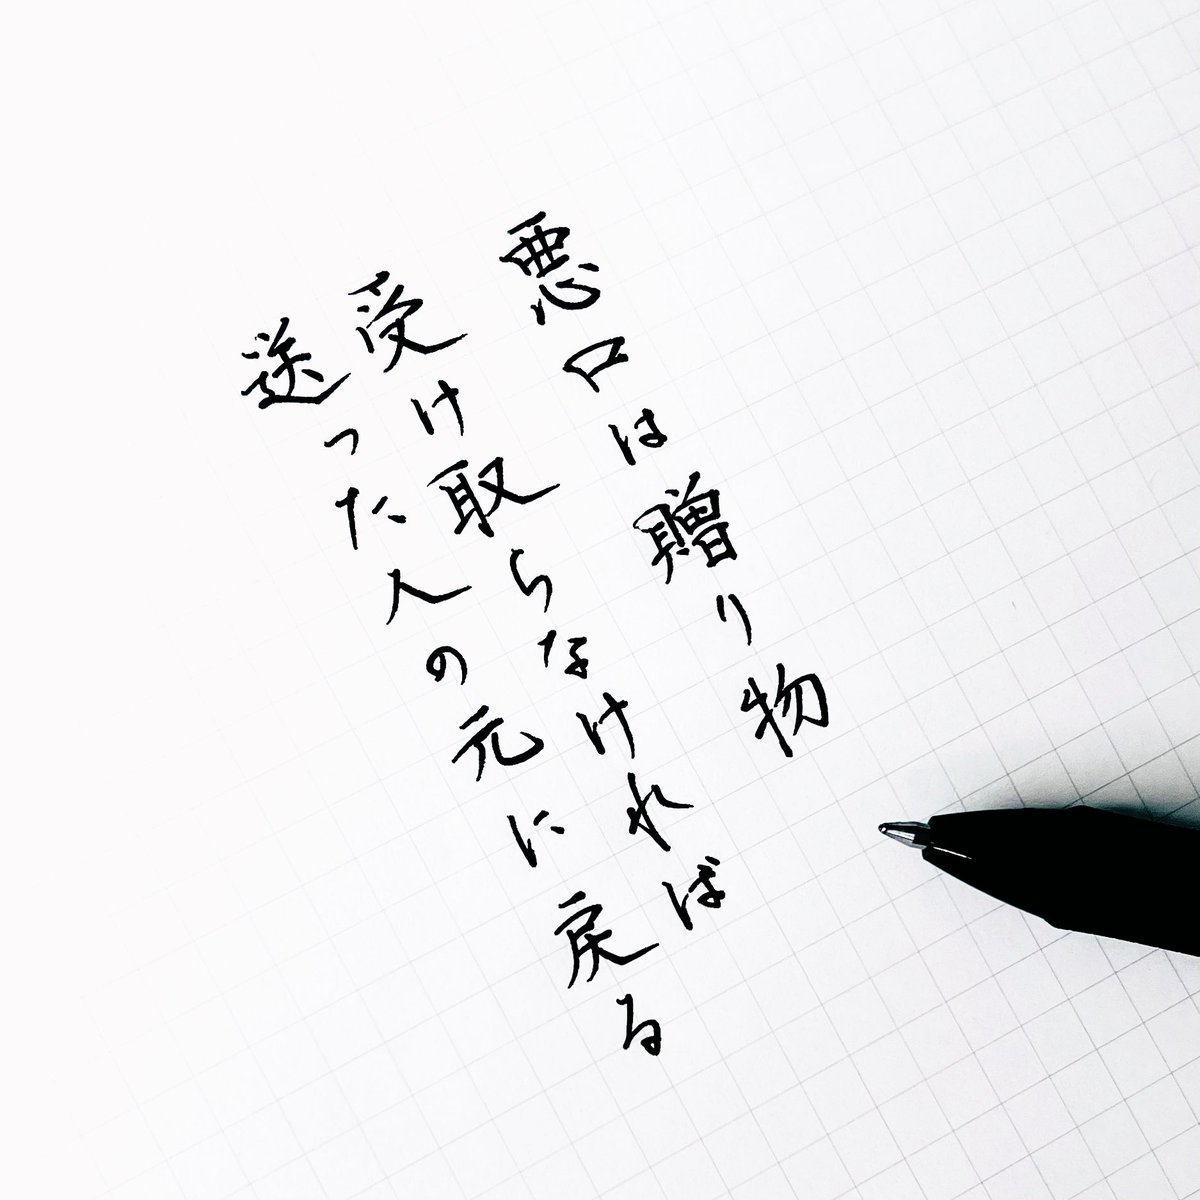 悪口は贈り物
受け取らなければ
送った人の元に戻る